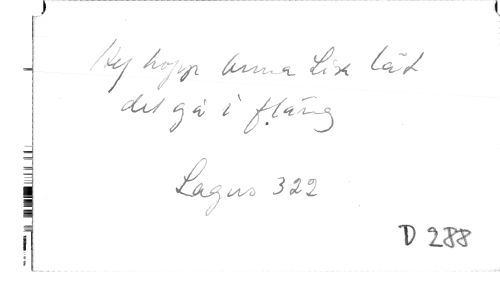 Hej hopp Anna Lisa låt
det gå i fläng
Lagus 322
D 288